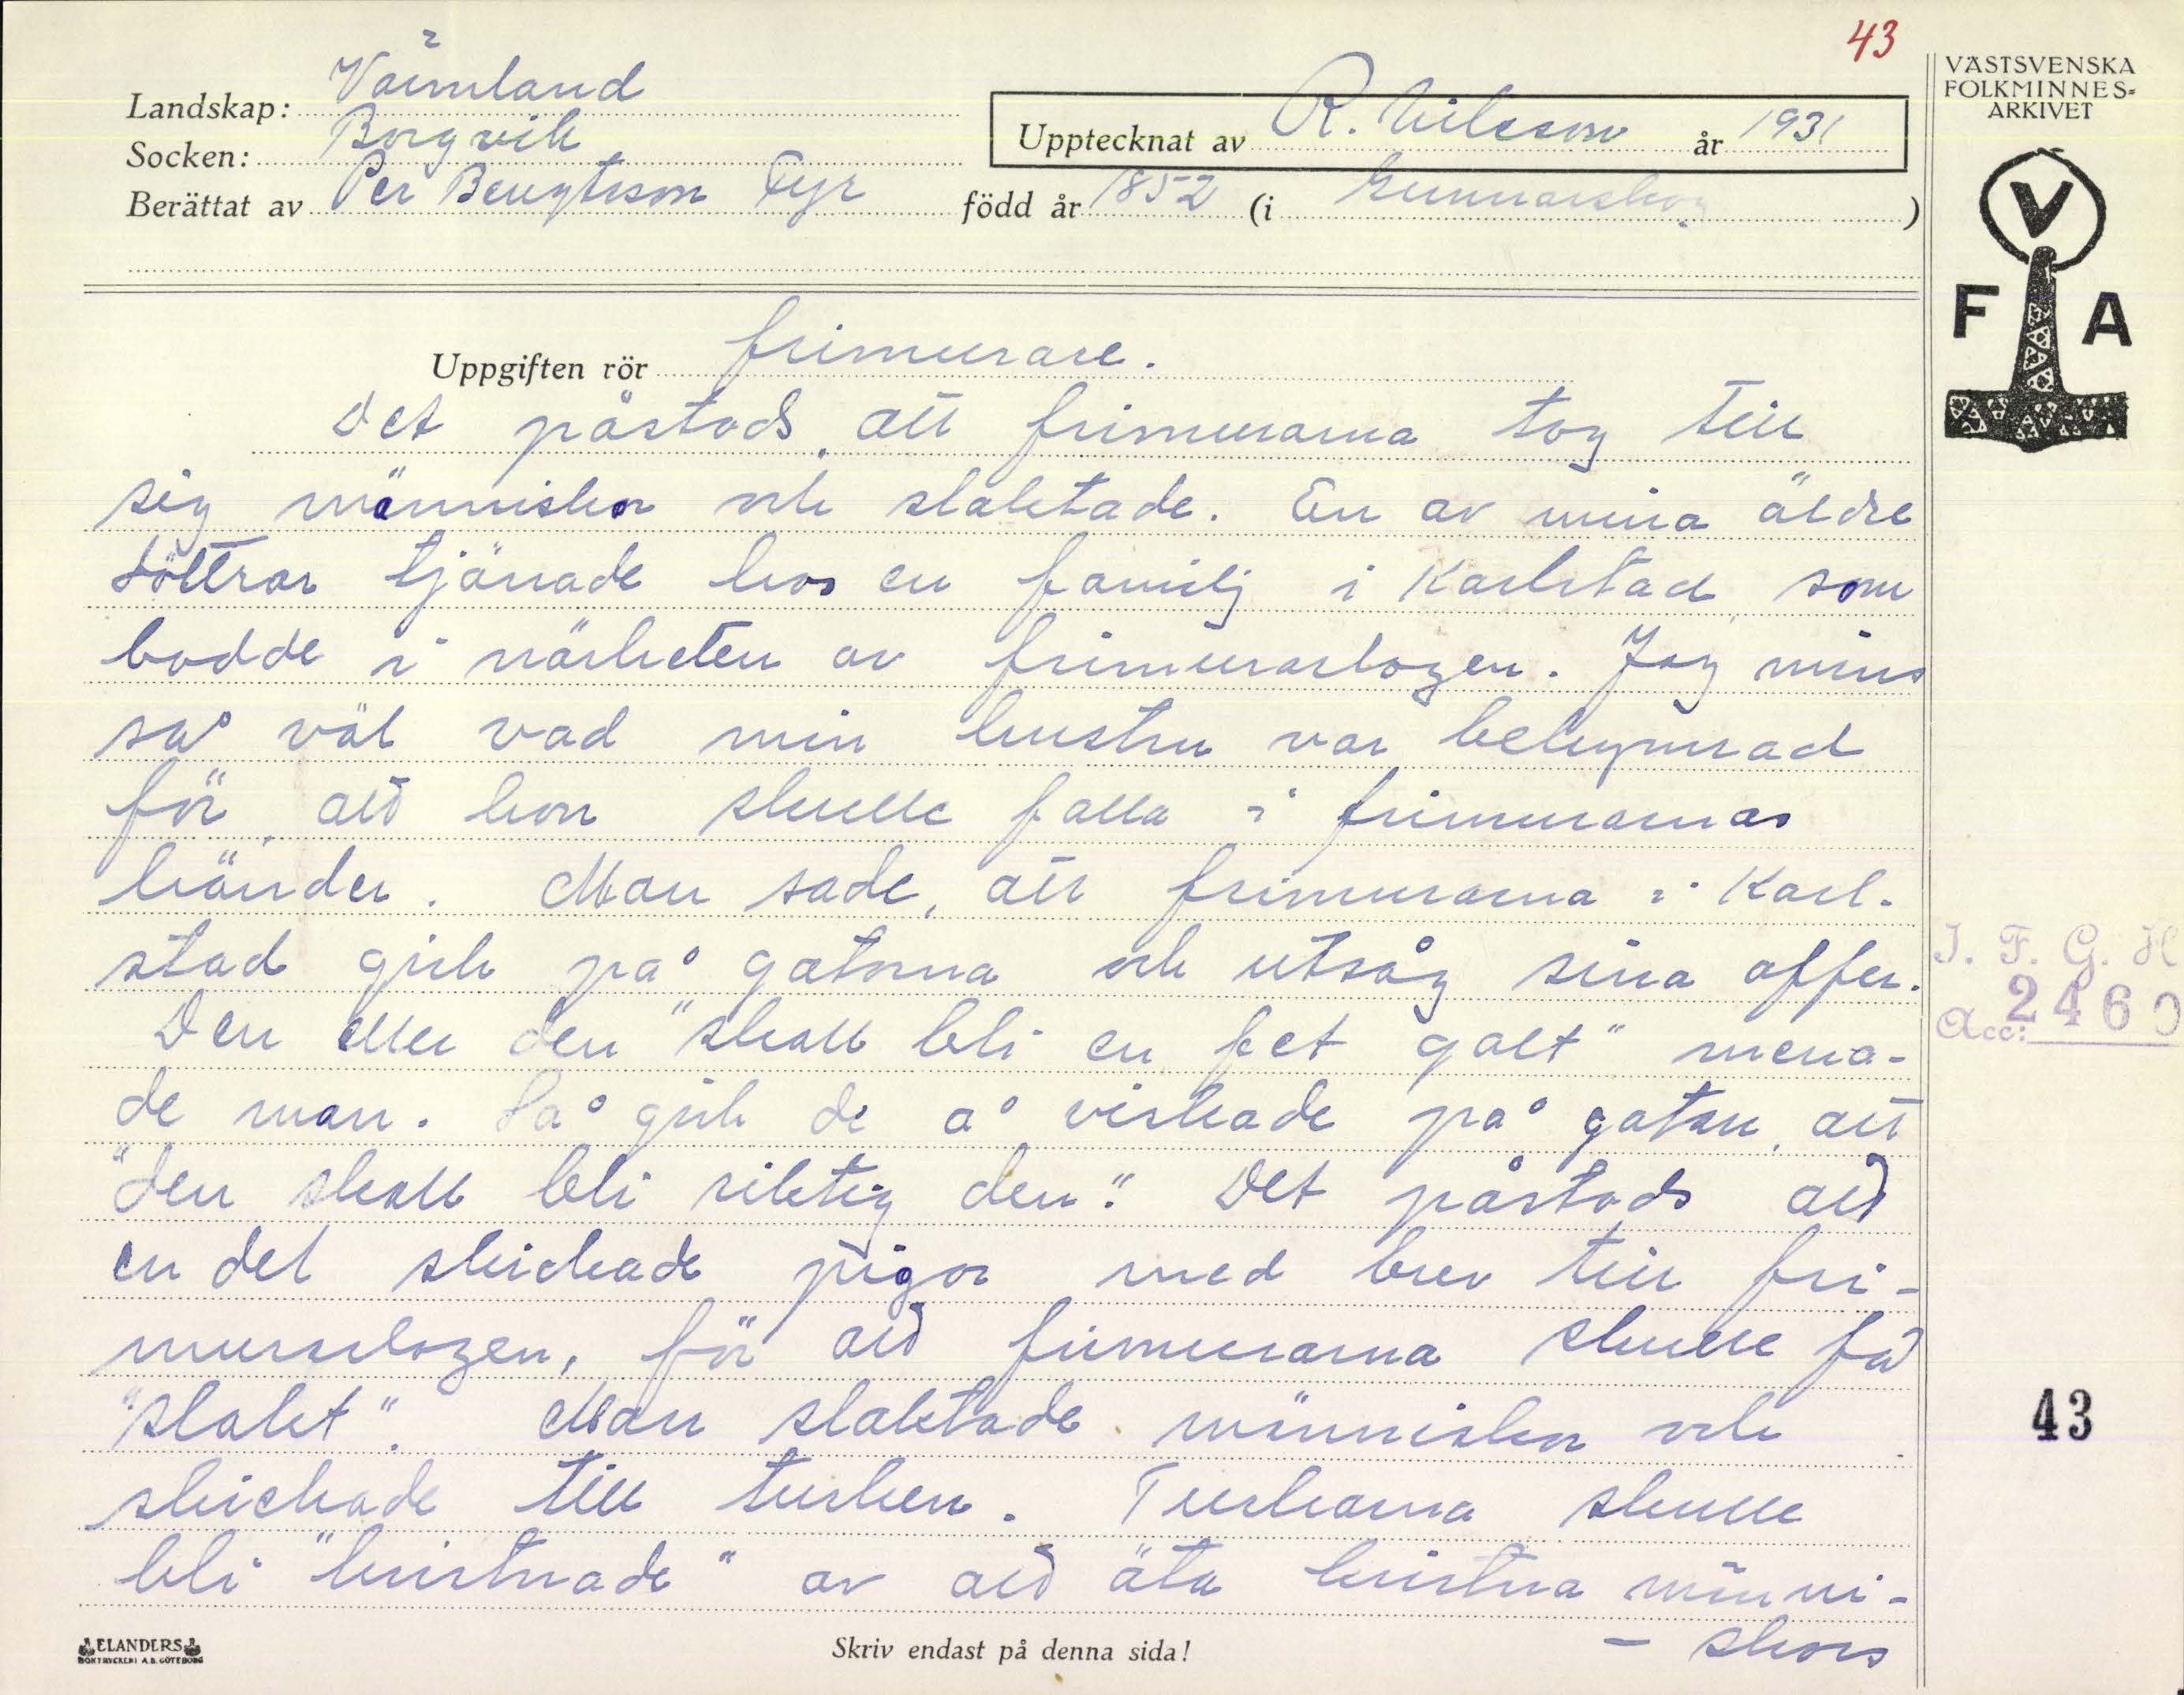 43
VÄSTSVENSKA
FOLKMINNES-
ARKIVET
Landskap: Värmland
Socken: Borgvik
Upptecknat av R. Nilsson år 1931
Berättat av Per Bengtsson Fyr född år 1852 (i Gunnarskog)
V
F A
Uppgiften rör frimurare.
Det påstods, att frimurarna tog till
sig människor och slaktade. En av mina äldre
döttrar tjänade hos en familj i Karlstad, som
bodde i närheten av frimurarlogen. Jag mins
så väl vad min hustru var bekymrad
för, att hon skulle falla i frimurarnas
händer. Man sade, att frimurarna i Karl-
stad gick på gatorna och utsåg sina offer.
Den eller den "skall bli en fet galt" mena-
de man. Så gick de å viskade på gatan, att
"den skall bli riktig den". Det påstods att
en del skickade pigor med brev till fri-
murarlogen, för att frimurarna skulle få
"slakt". Man slaktade människor och
skickade till turken. Turkarna skulle
bli "kristnade" av att äta kristna männi-
- skors
I. F. G. H
Acc: 2460
43
ELANDERS
BOKTRYCKERI A.B. GÖTEBORG
Skriv endast på denna sida!